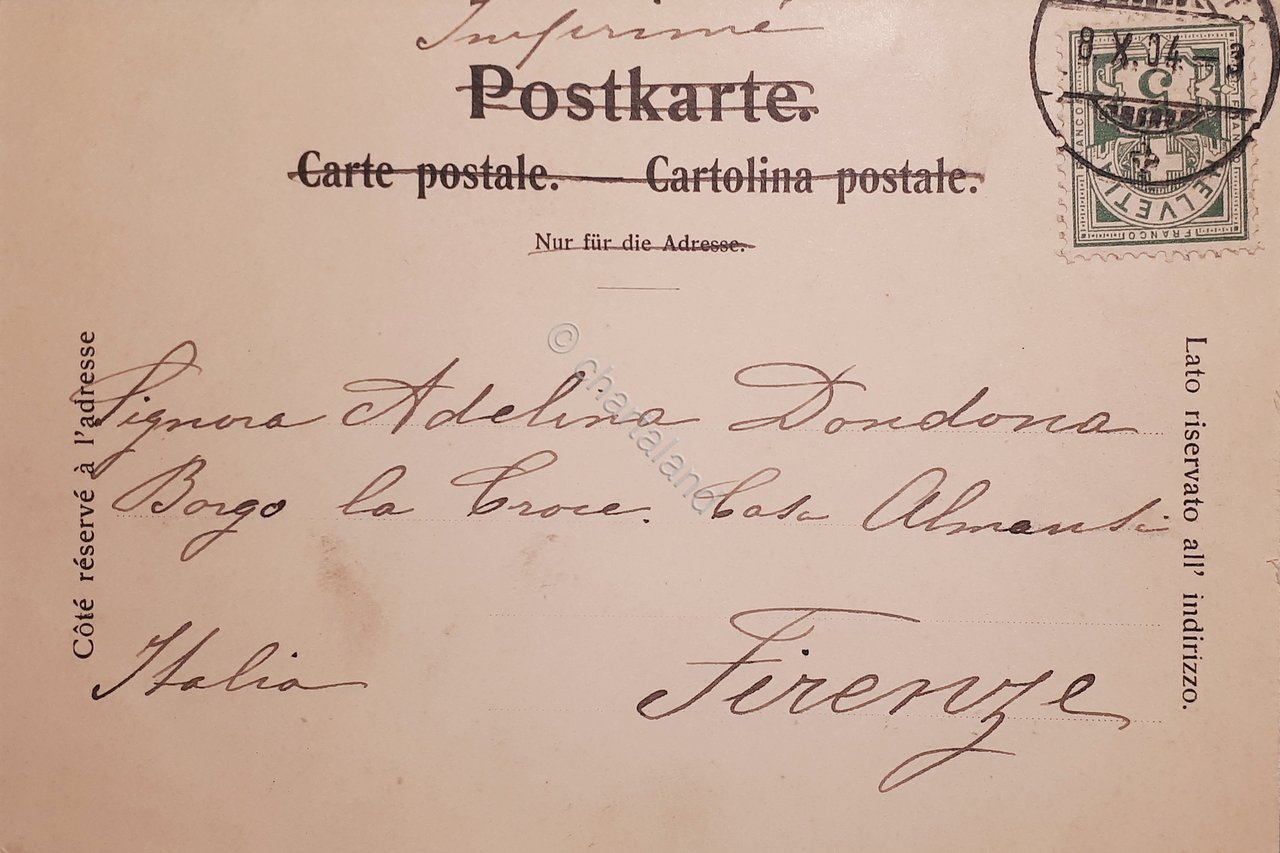 Imprimé
Postkarte.
Carte postale. — Cartolina postale.
Nur für die Adresse.
8.X.04.–3
5
FRANCO
HELVETIA
FRANCO
Côté réservé à l'adresse
Signora Adelina Dondona
Borgo la Croce. Casa Almansi
Italia
Firenze
Lato riservato all' indirizzo.
© chartaland